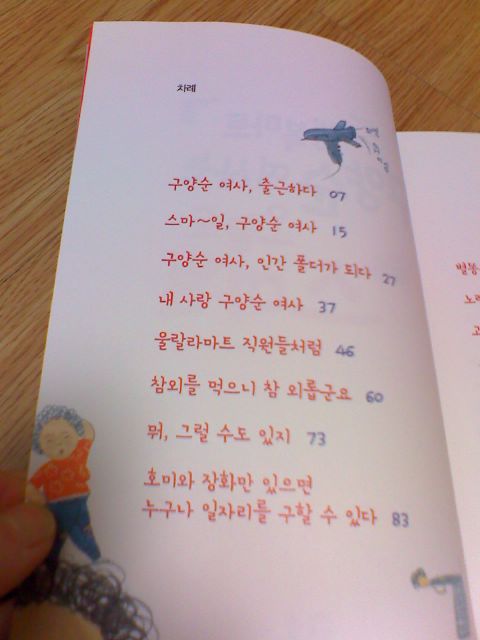 차례
구양순 여사, 출근하다 07
스마~일, 구양순 여사 15
구양순 여사, 인간 폴더가 되다 27
내 사랑 구양순 여사 37
울랄라마트 직원들처럼 46
참외를 먹으니 참 외롭군요 60
뭐, 그럴 수도 있지 73
호미와 장화만 있으면
누구나 일자리를 구할 수 있다 83